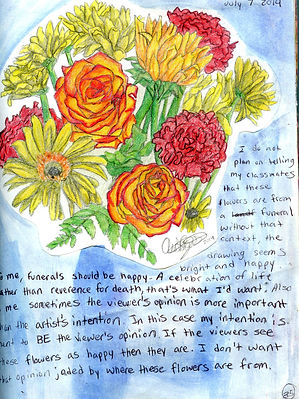 July 7 2014
I do not
plan on telling
my classmates
that these
flowers are from
a funeral
without that
context, the
drawing seems
bright and happy.
To me, funerals should be happy. A celebration of life
rather than reverence for death, that's what I'd want. Also
me sometimes the viewer's opinion is more important
than the artist's intention. In this case my intention is
to BE the viewer's opinion. If the viewers see
these flowers as happy then they are. I don't want
that opinion jaded by where these flowers are from.